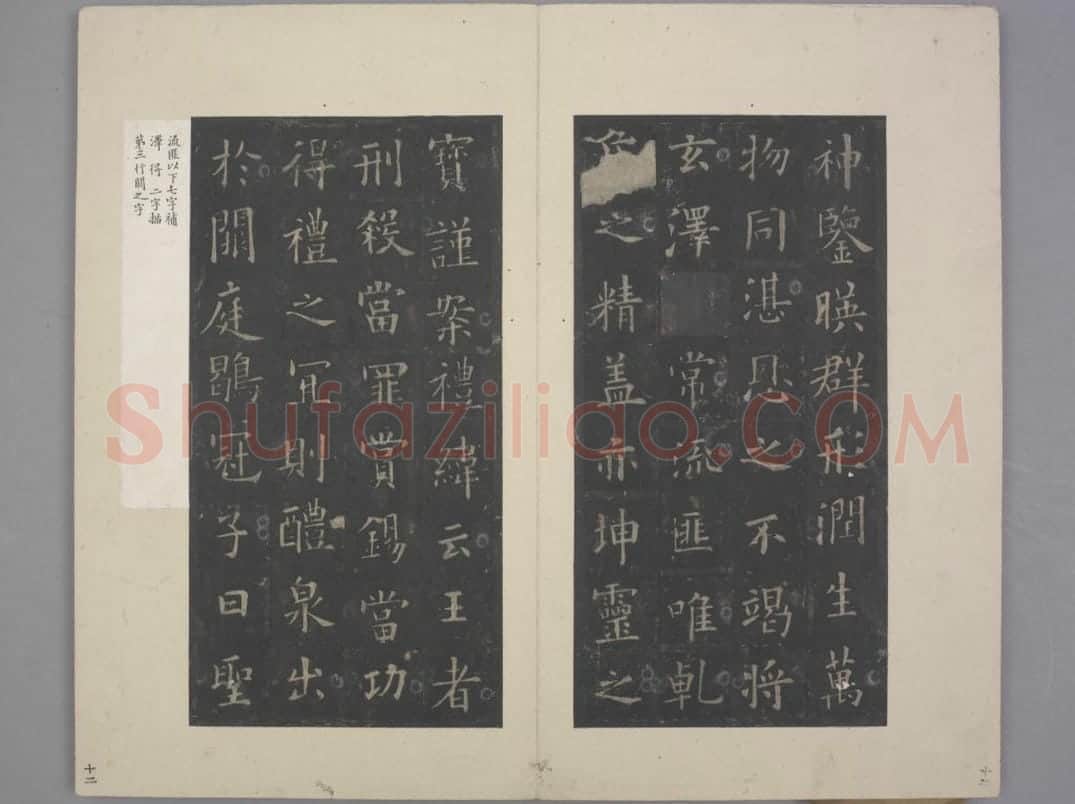 神鑒暎群形潤生萬
物同湛恩之不竭將
玄澤常流匪唯乹
之精盖亦坤靈之
寶謹案禮緯云王者
刑殺當罪賞錫當功
得禮之冝則醴泉出
於闕庭鶡冠子曰聖
流匪以下七字補
澤得二字描
第三行闕之字
十一
十二
Shufaziliao.COM